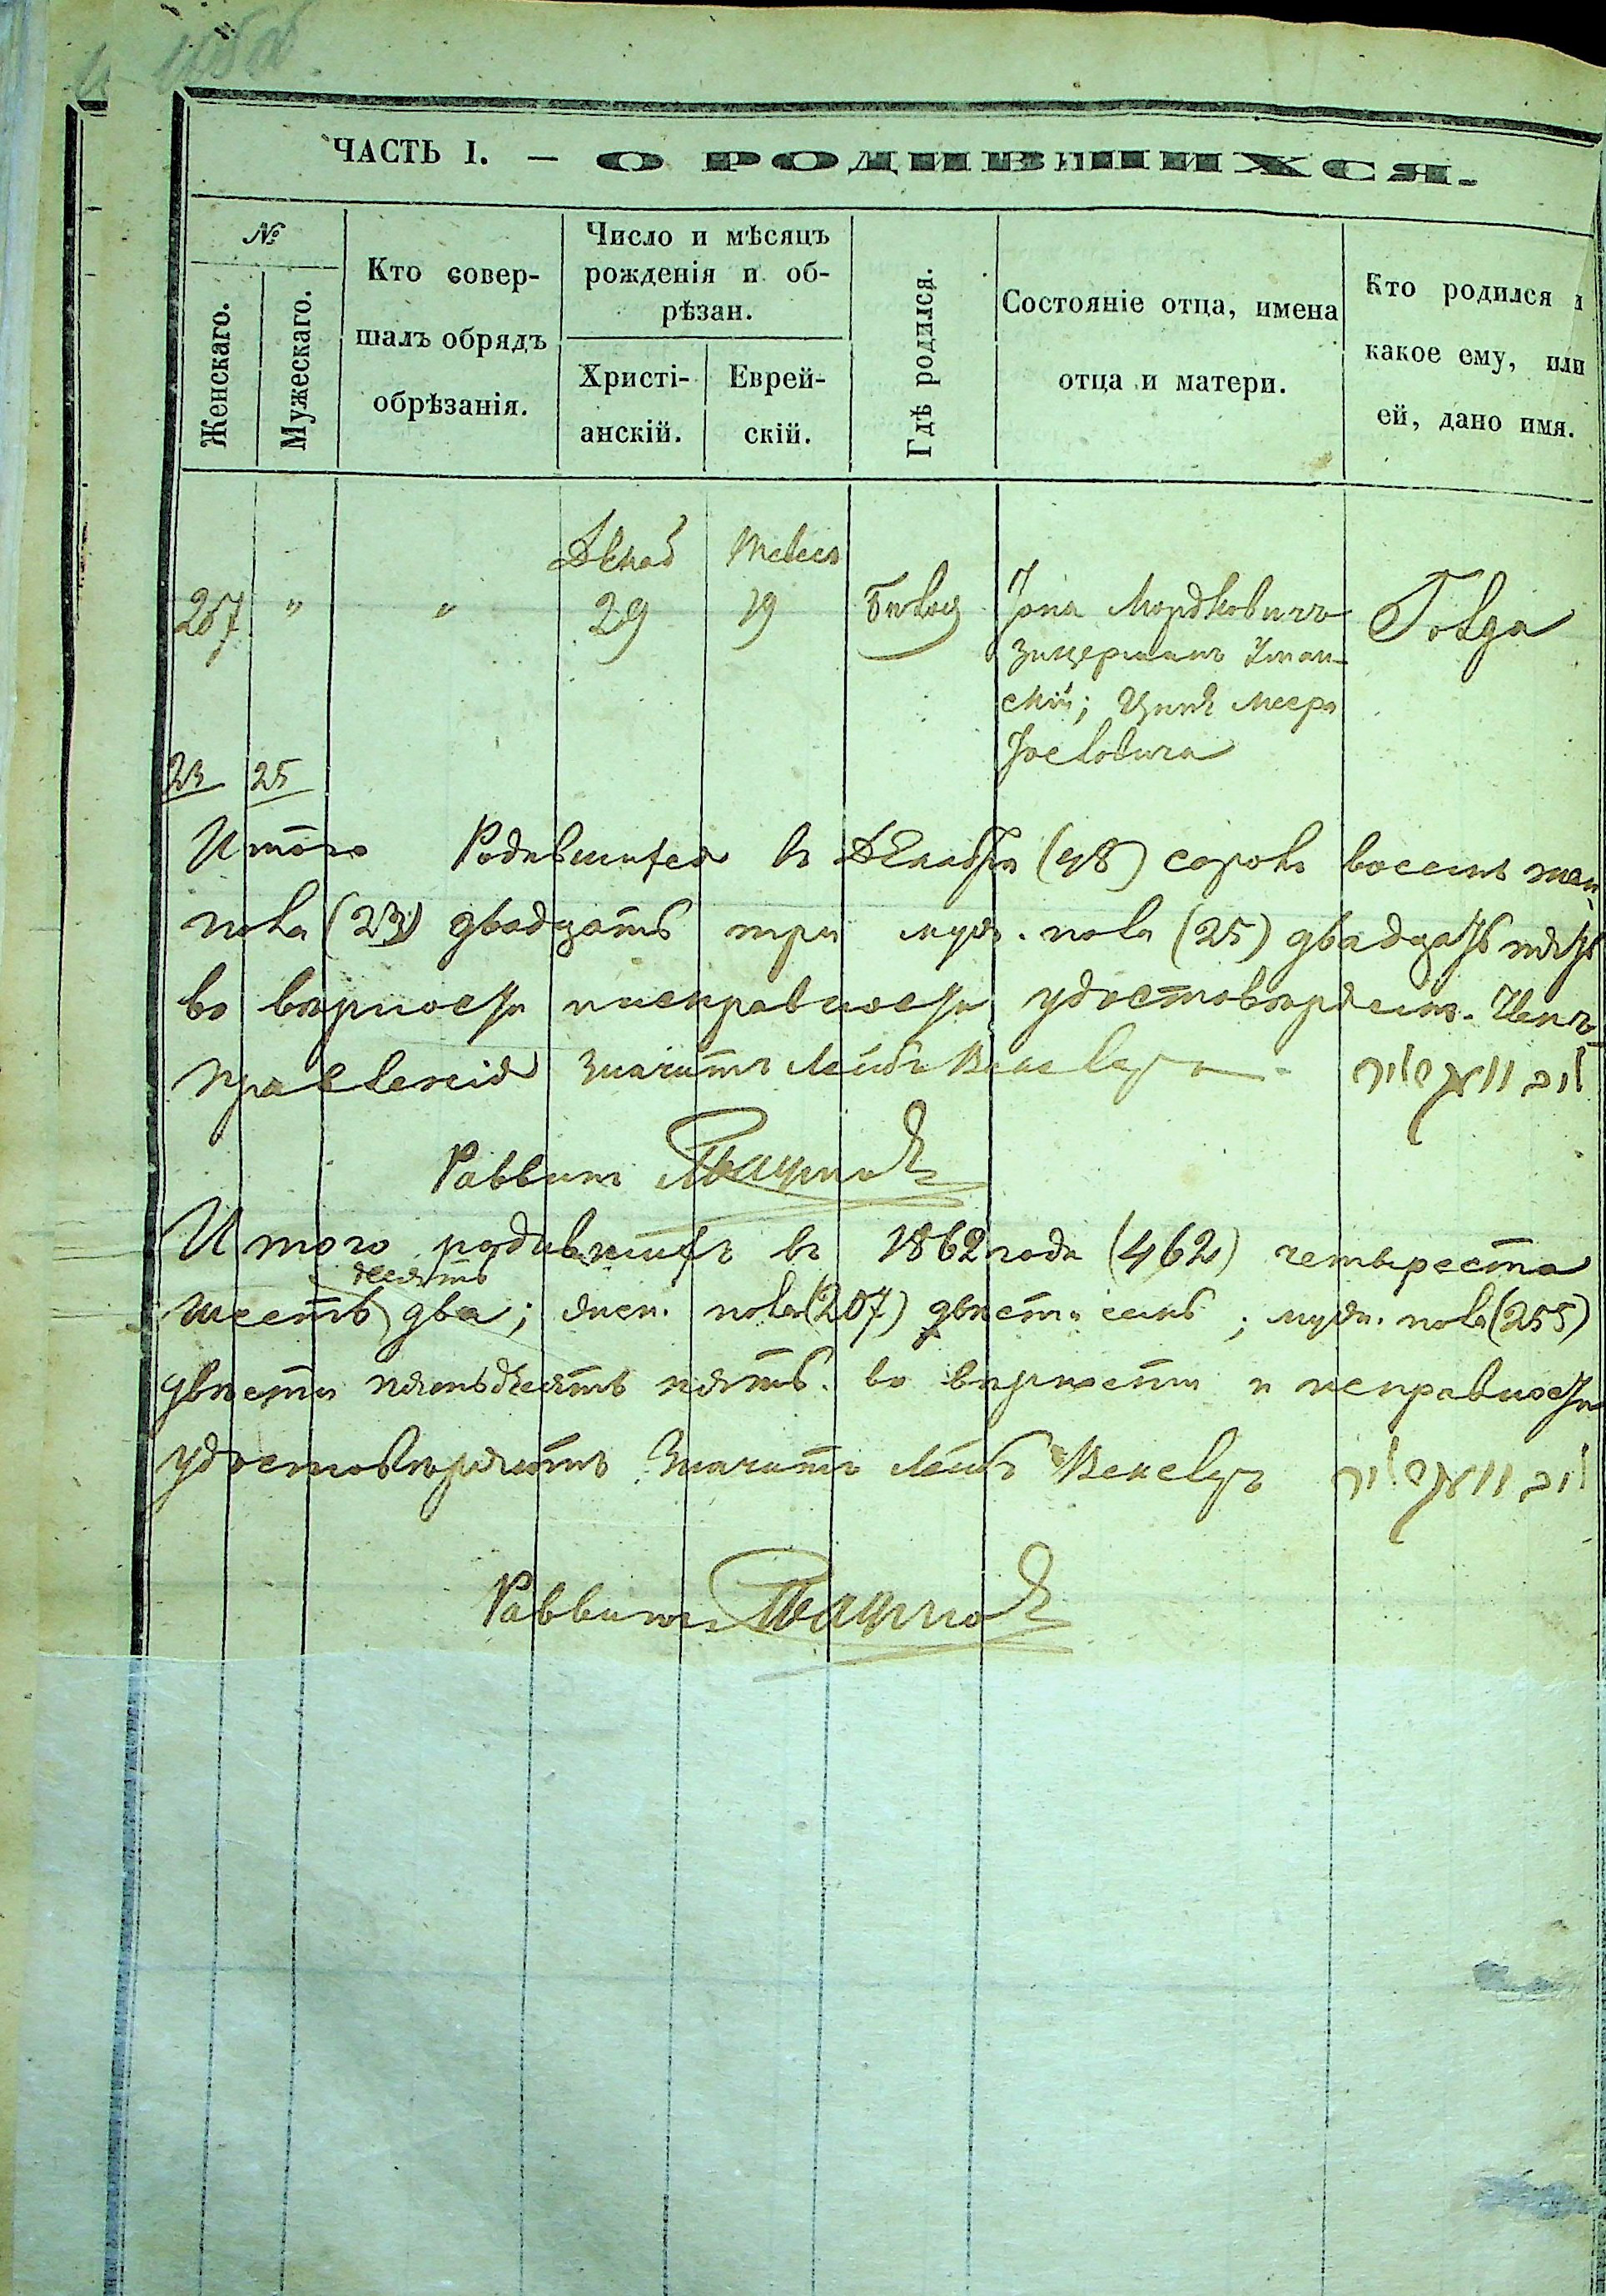 ЧАСТЬ I. — О РОДИВШИХСЯ.
№
Женскаго.
Мужескаго.
Кто совер-
шалъ обрядъ
обрѣзанія.
Число и мѣсяцъ
рожденія и об-
рѣзан.
Христі-
анскій.
Еврей-
скій.
Гдѣ родился.
Состояніе отца, имена
отца и матери.
Кто родился и
какое ему, или
ей, дано имя.
Декаб
207 " " 29 19
Іона Мордковичъ
Зицерманъ Уман-
скій; Меера
Іосьовича
23 25
Итого Родившихся въ Декабрѣ (48) сорокъ восемь жен.
пола (23) двадцать три муж. пола (25) двадцать пять
во вѣрности и исправности удостовѣряемъ. Член
правленія Значитъ Лейбъ
Раввинъ
Итого родившихъ въ 1862 года (462) четыреста
десятъ
шесть два; жен. пола (207) двѣсти семь; муж. пола (255)
двѣсти пятьдесятъ пять. во вѣрности и исправности
удостовѣряютъ Значитъ Лейбъ
Раввинъ